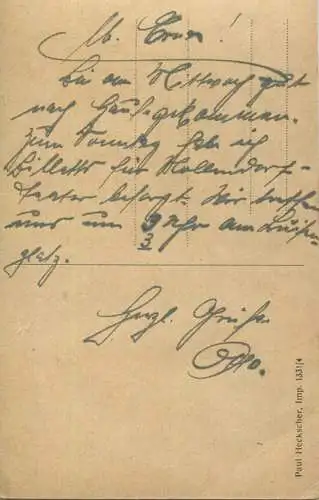 Lb. Erna!
Bin am Mittwoch gut
nach Haus gekommen.
Zum Sonntag hab ich
Billetts für Nollendorf-
theater besorgt. Wir treffen
uns um 3 Uhr am Luisen-
3
platz.
Herzl. Grüße
Otto.
Paul Heckscher, Imp. 1331/4